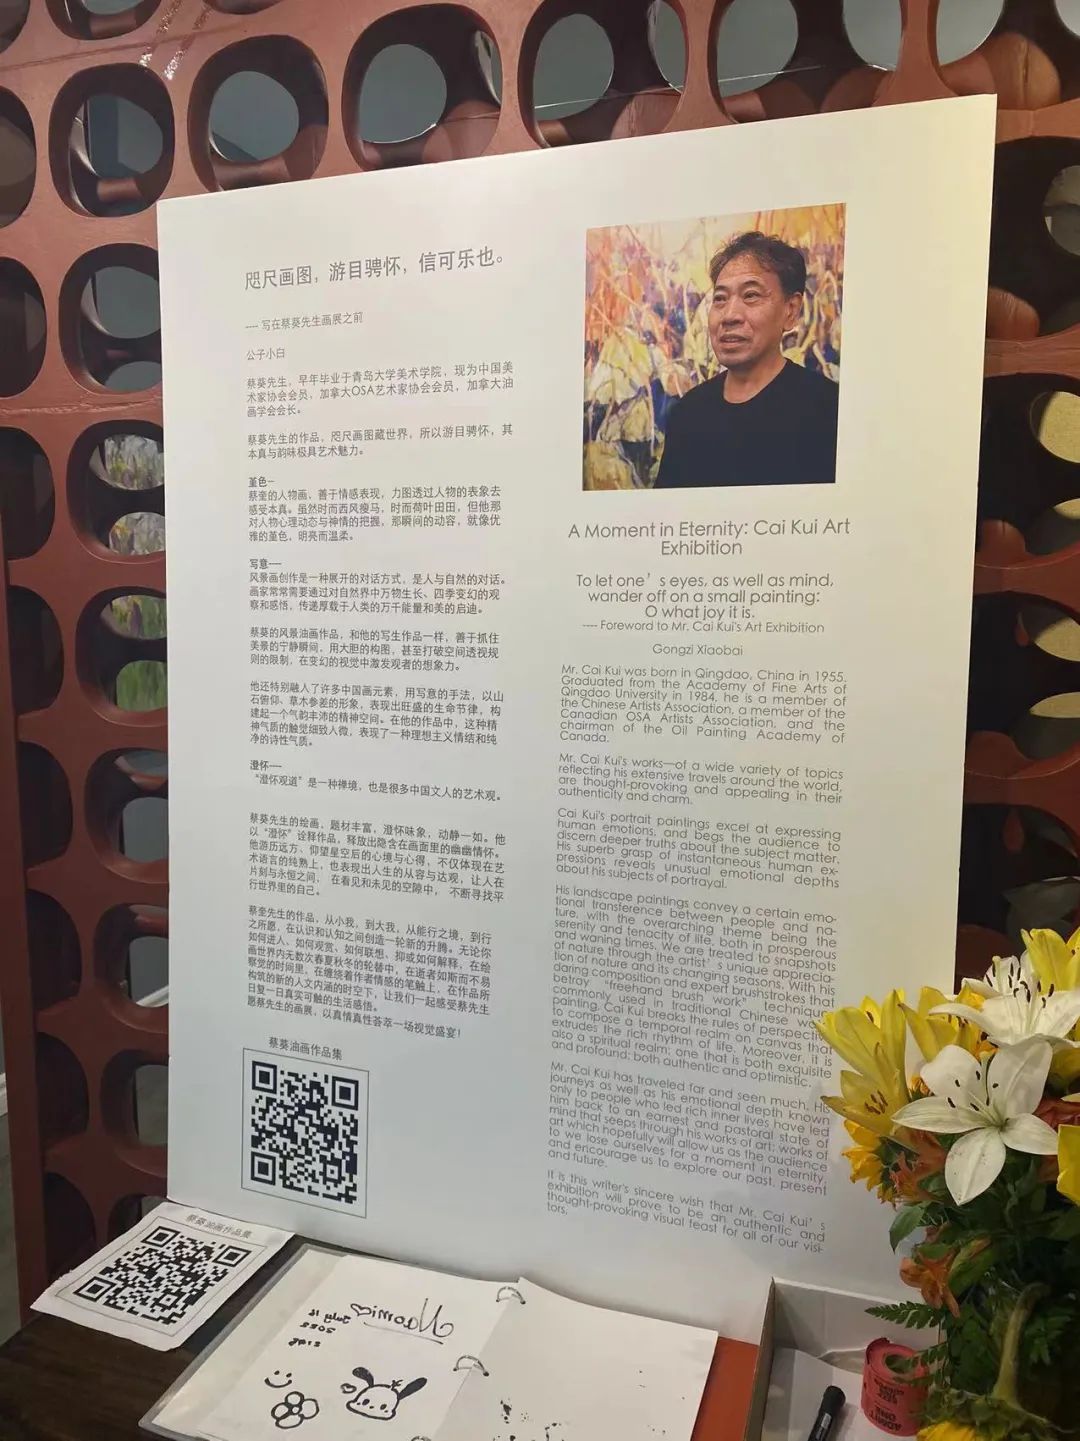 咫尺画图，游目骋怀，信可乐也。
---- 写在蔡葵先生画展之前
公子小白
蔡葵先生，早年毕业于青岛大学美术学院，现为中国美
术家协会会员，加拿大OSA艺术家协会会员，加拿大油
画学会会长。
蔡葵先生的作品，咫尺画图藏世界，所以游目骋怀，其
本真与韵味极具艺术魅力。
堇色—
蔡奎的人物画，善于情感表现，力图透过人物的表象去
感受本真。虽然时而西风瘦马，时而荷叶田田，但他那
对人物心理动态与神情的把握，那瞬间的动容，就像优
雅的堇色，明亮而温柔。
写意----
风景画创作是一种展开的对话方式，是人与自然的对话。
画家常常需要通过对自然界中万物生长、四季变幻的观
察和感悟，传递厚载于人类的万千能量和美的启迪。
蔡葵的风景油画作品，和他的写生作品一样，善于抓住
美景的宁静瞬间，用大胆的构图，甚至打破空间透视规
则的限制，在变幻的视觉中激发观者的想象力。
他还特别融入了许多中国画元素，用写意的手法，以山
石俯仰、草木参差的形象，表现出旺盛的生命节律，构
建起一个气韵丰沛的精神空间。在他的作品中，这种精
神气质的触觉细致入微，表现了一种理想主义情结和纯
净的诗性气质。
澄怀----
“澄怀观道”是一种禅境，也是很多中国文人的艺术观。
蔡葵先生的绘画，题材丰富，澄怀味象，动静一如。他
以“澄怀”诠释作品，释放出隐含在画面里的幽幽情怀。
他游历远方、仰望星空后的心境与心得，不仅体现在艺
术语言的纯熟上，也表现出人生的从容与达观，让人在
片刻与永恒之间， 在看见和未见的空隙中， 不断寻找平
行世界里的自己。
蔡奎先生的作品，从小我，到大我，从能行之境，到行
之所愿，在认识和认知之间创造一轮新的升腾。无论你
如何进入、如何观赏、如何联想、抑或如何解释，在绘
画世界内无数次春夏秋冬的轮替中，在逝者如斯而不易
察觉的时间里，在缠绕着作者情感的笔触上，在作品所
构筑的新的人文内涵的时空下，让我们一起感受蔡先生
日复一日真实可触的生活感悟。
愿蔡先生的画展，以真情真性荟萃一场视觉盛宴！
蔡葵油画作品集
A Moment in Eternity: Cai Kui Art
Exhibition
To let one’s eyes, as well as mind,
wander off on a small painting:
O what joy it is.
---- Foreword to Mr. Cai Kui's Art Exhibition
Gongzi Xiaobai
Mr. Cai Kui was born in Qingdao, China in 1955.
Graduated from the Academy of Fine Arts of
Qingdao University in 1984, he is a member of
the Chinese Artists Association, a member of the
Canadian OSA Artists Association, and the
chairman of the Oil Painting Academy of
Canada.
Mr. Cai Kui's works—of a wide variety of topics
reflecting his extensive travels around the world,
are thought-provoking and appealing in their
authenticity and charm.
Cai Kui's portrait paintings excel at expressing
human emotions, and begs the audience to
discern deeper truths about the subject matter.
His superb grasp of instantaneous human ex-
pressions reveals unusual emotional depths
about his subjects of portrayal.
His landscape paintings convey a certain emo-
tional transference between people and na-
ture, with the overarching theme being the
serenity and tenacity of life, both in prosperous
and waning times. We are treated to snapshots
of nature through the artist’s unique apprecia-
tion of nature and its changing seasons. With his
daring composition and expert brushstrokes that
betray “freehand brush work” technique
commonly used in traditional Chinese
painting, Cai Kui breaks the rules of
to compose a temporal realm on canvas that
extrudes the rich rhythm of life. Moreover, it is
also a spiritual realm; one that is both exquisite
and profound; both authentic and optimistic.
Mr. Cai Kui has traveled far and seen much. His
journeys as well as his emotional depth known
only to people who led rich inner lives have led
him back to an earnest and pastoral state of
mind that seeps through his works of art; works of
art which hopefully will allow us as the audience
to we lose ourselves for a moment in eternity,
and encourage us to explore our past, present
and future.
It is this writer's sincere wish that Mr. Cai Kui’s
exhibition will prove to be an authentic and
thought-provoking visual feast for all of our visi-
tors.
蔡葵油画作品集
Naomi
ADMIT
ONE